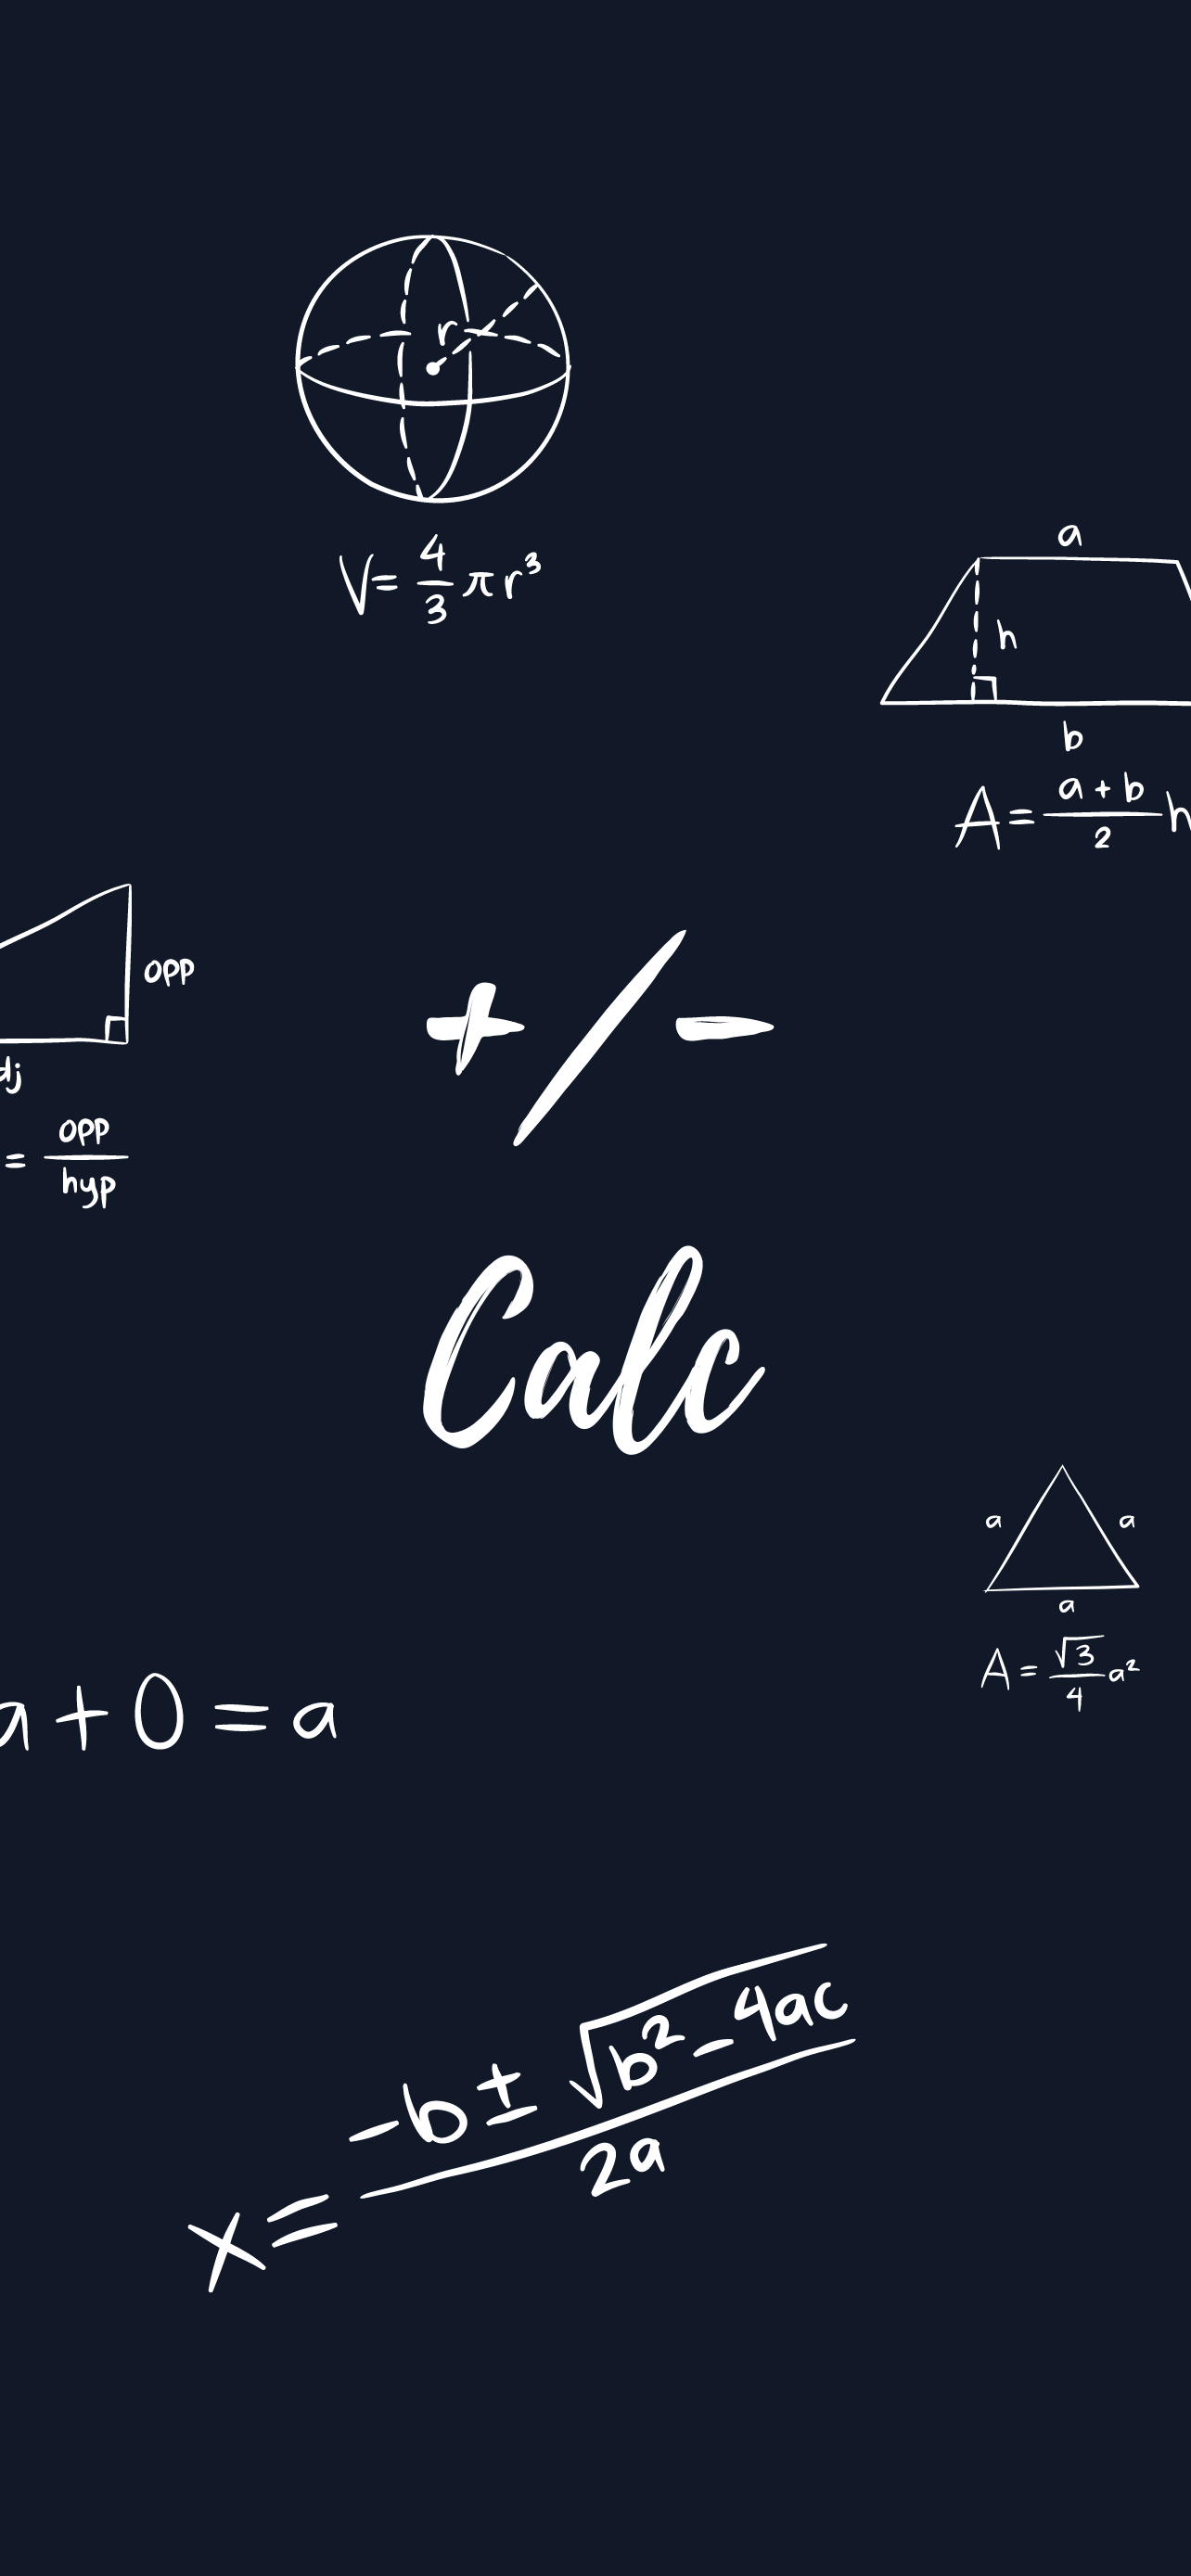 r
V = 4/3 πr³
a
h
b
A = a + b / 2 h
opp
dj
= opp / hyp
+/-
Calc
a a
a
A = √3/4 a²
a + 0 = a
x = -b ± √b² - 4ac / 2a